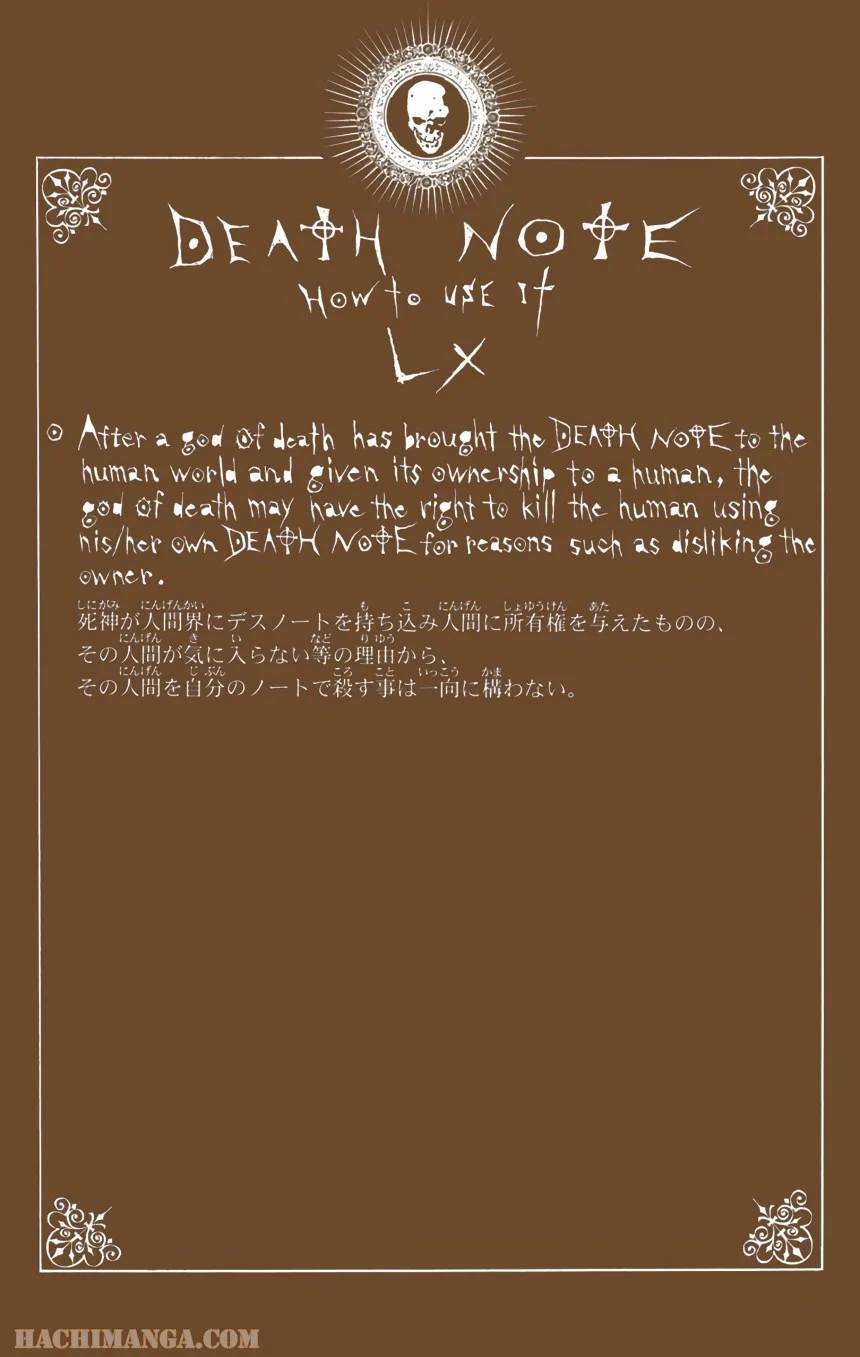 DEATH NOTE
HOW to USE It
LX
After a god of death has brought the DEATH NOTE to the
human world and given its ownership to a human, the
god of death may have the right to kill the human using
his/her own DEATH NOTE for reasons such as disliking the
owner.
しにがみ にんげんかい も こ にんげん しょゆうけん あた
死神が人間界にデスノートを持ち込み人間に所有権を与えたものの、
にんげん き い など りゆう
その人間が気に入らない等の理由から、
にんげん じぶん ころ こと いっこう かま
その人間を自分のノートで殺す事は一向に構わない。
HACHIMANGA.COM